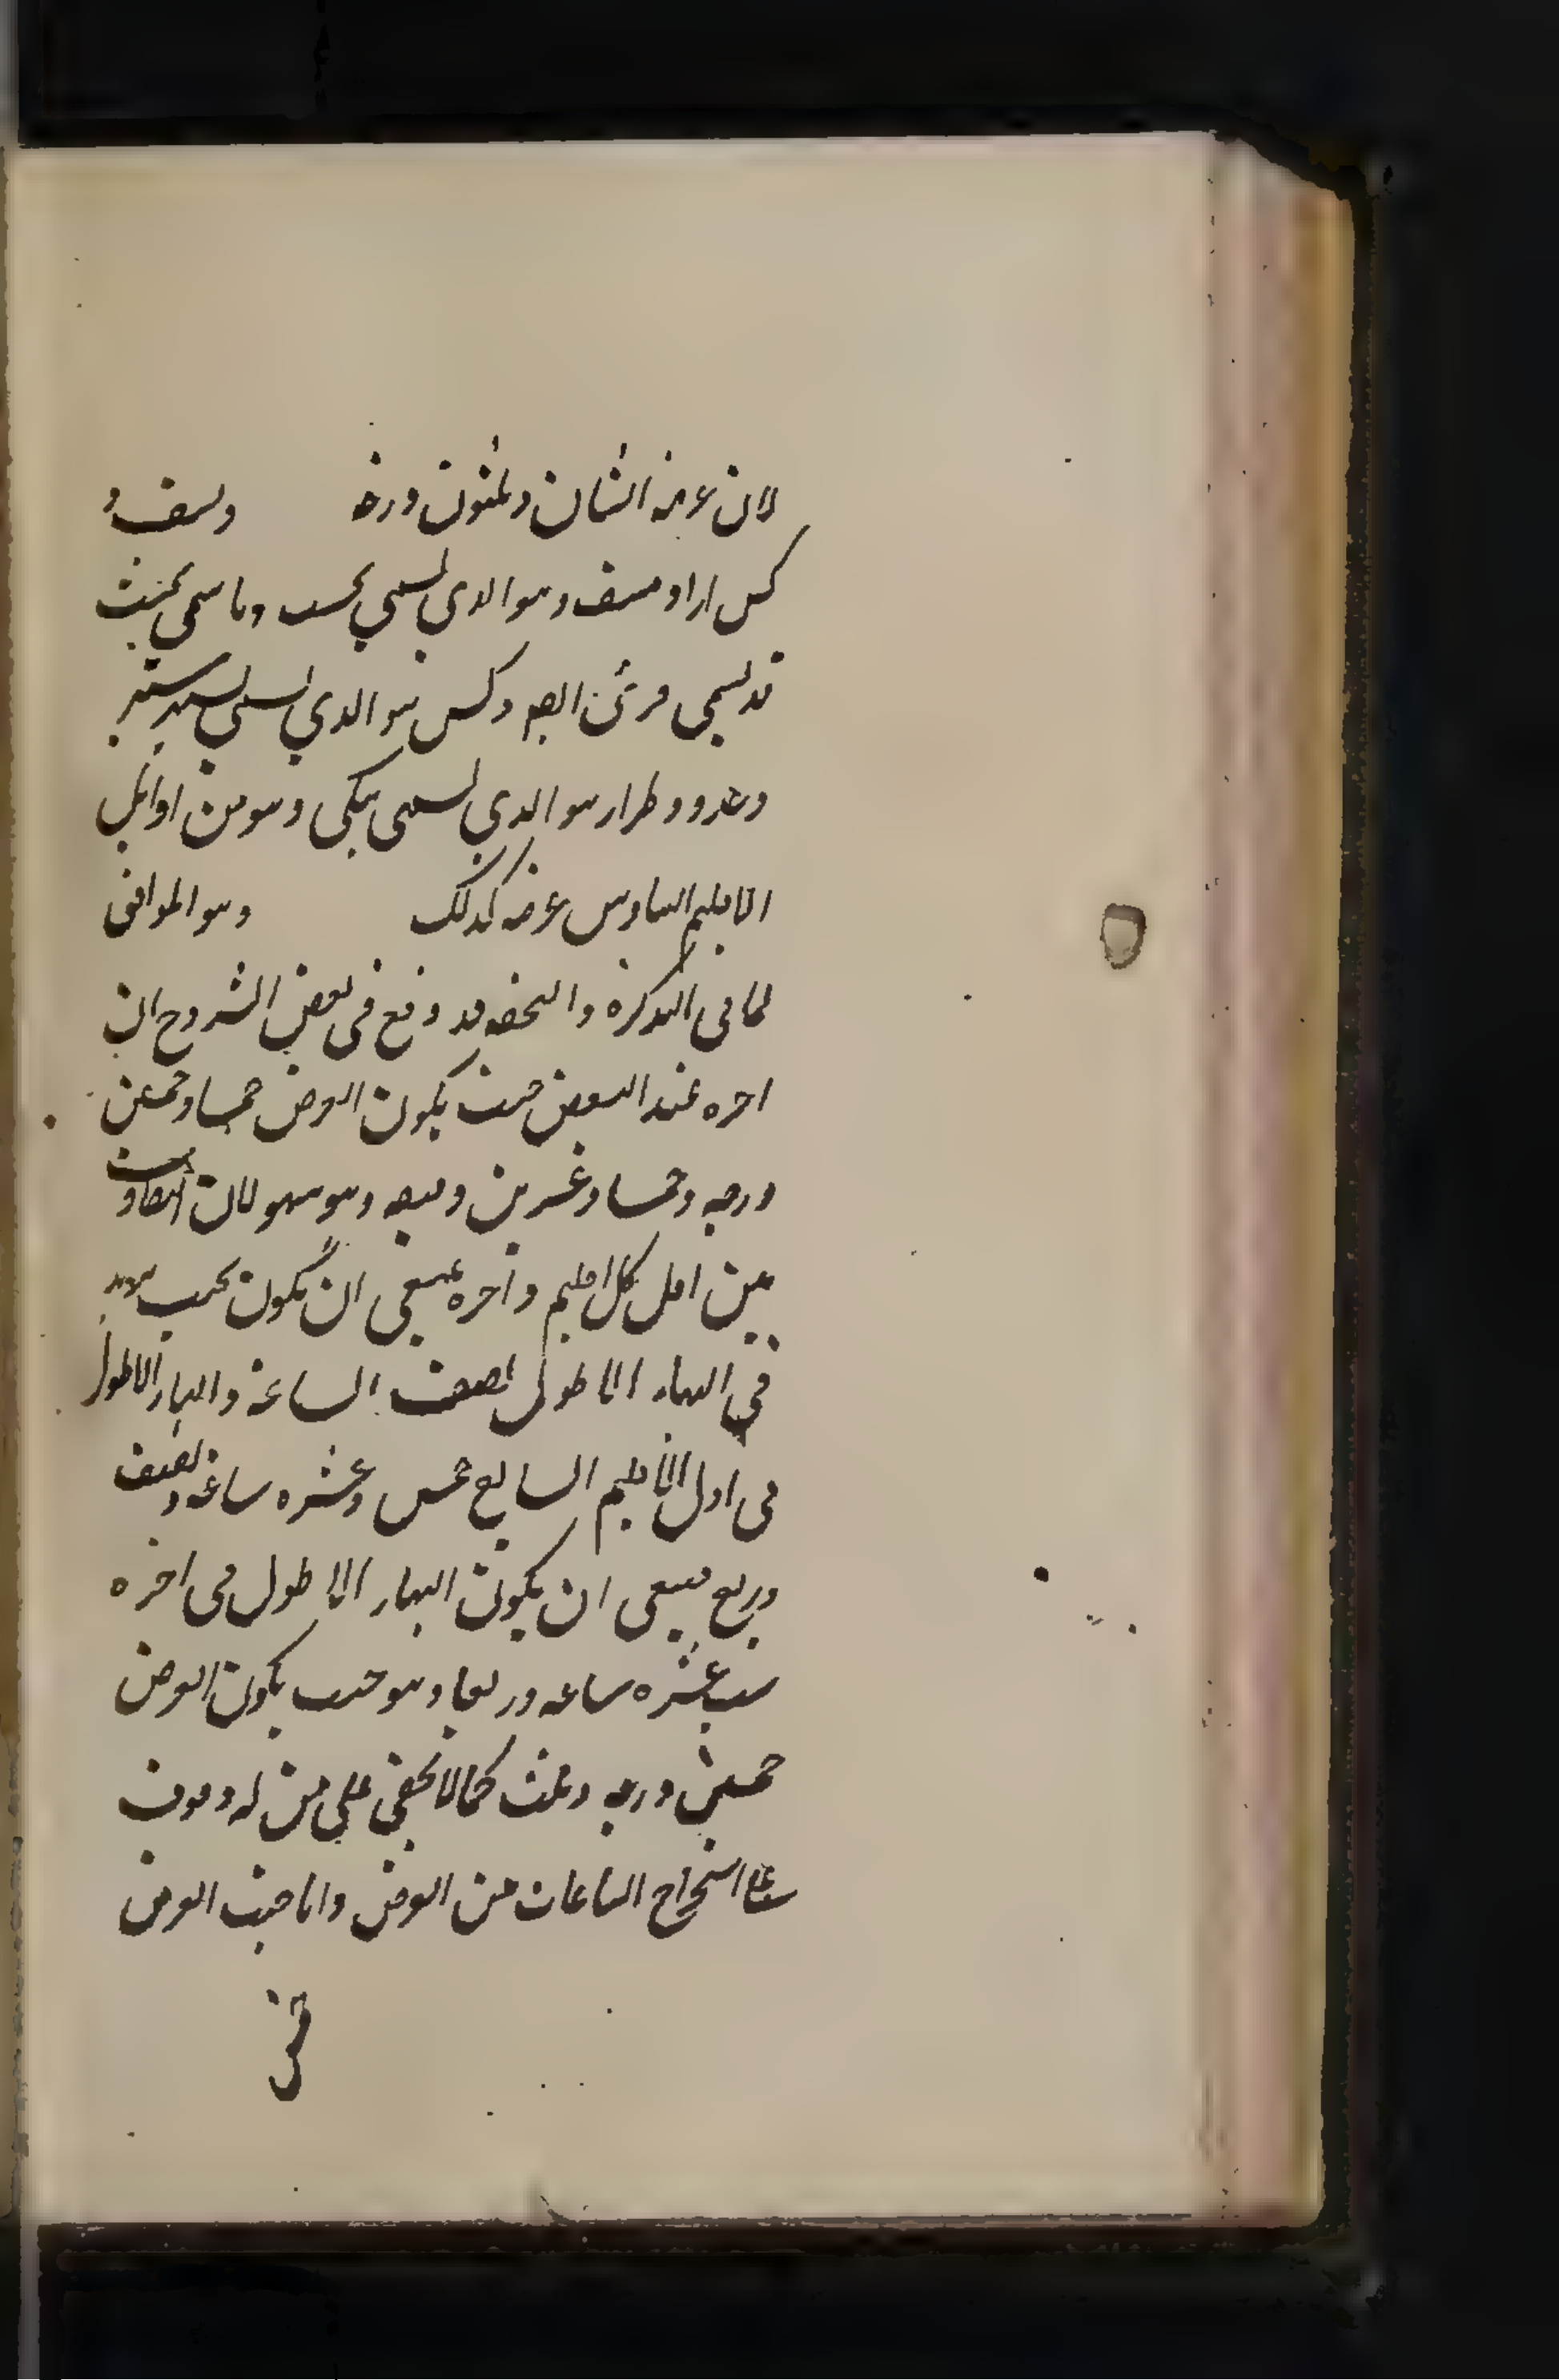 لان عرضه اثنان وثلثون درجة ونسف و
كس اراد نسف وهو الذي يسمي بحسب وما سمي بحيث
قد يسمى قرشى ايضا وكس هو الذي يسمى بسهر سبز
وطراز هو الذي يسمى بنكى وهو من اوائل
الاقليم السادس عرضه كذلك وهو الموافق
لما في التذكرة والتحفة قد وقع في بعض الشروح ان
اخره عند البعض حيث يكون العرض خمسا وخمسين
درجه وخمسا وعشرين دقيقه وهو سهو لان التفاوت
بين اول كل اقليم واخره ينبغي ان يكون بحيث يزيد
في النهار الاطول نصف الساعة والنهار الاطول
في اول الاقليم السابع خمس عشره ساعة ونصف
وربع فينبغي ان يكون النهار الاطول في اخره
ست عشره ساعه وربعا وهو حيث يكون العرض
خمسين درجه وثلث كما لا يخفى على من له وقوف
على استخراج الساعات من العرض واما حيث العرض